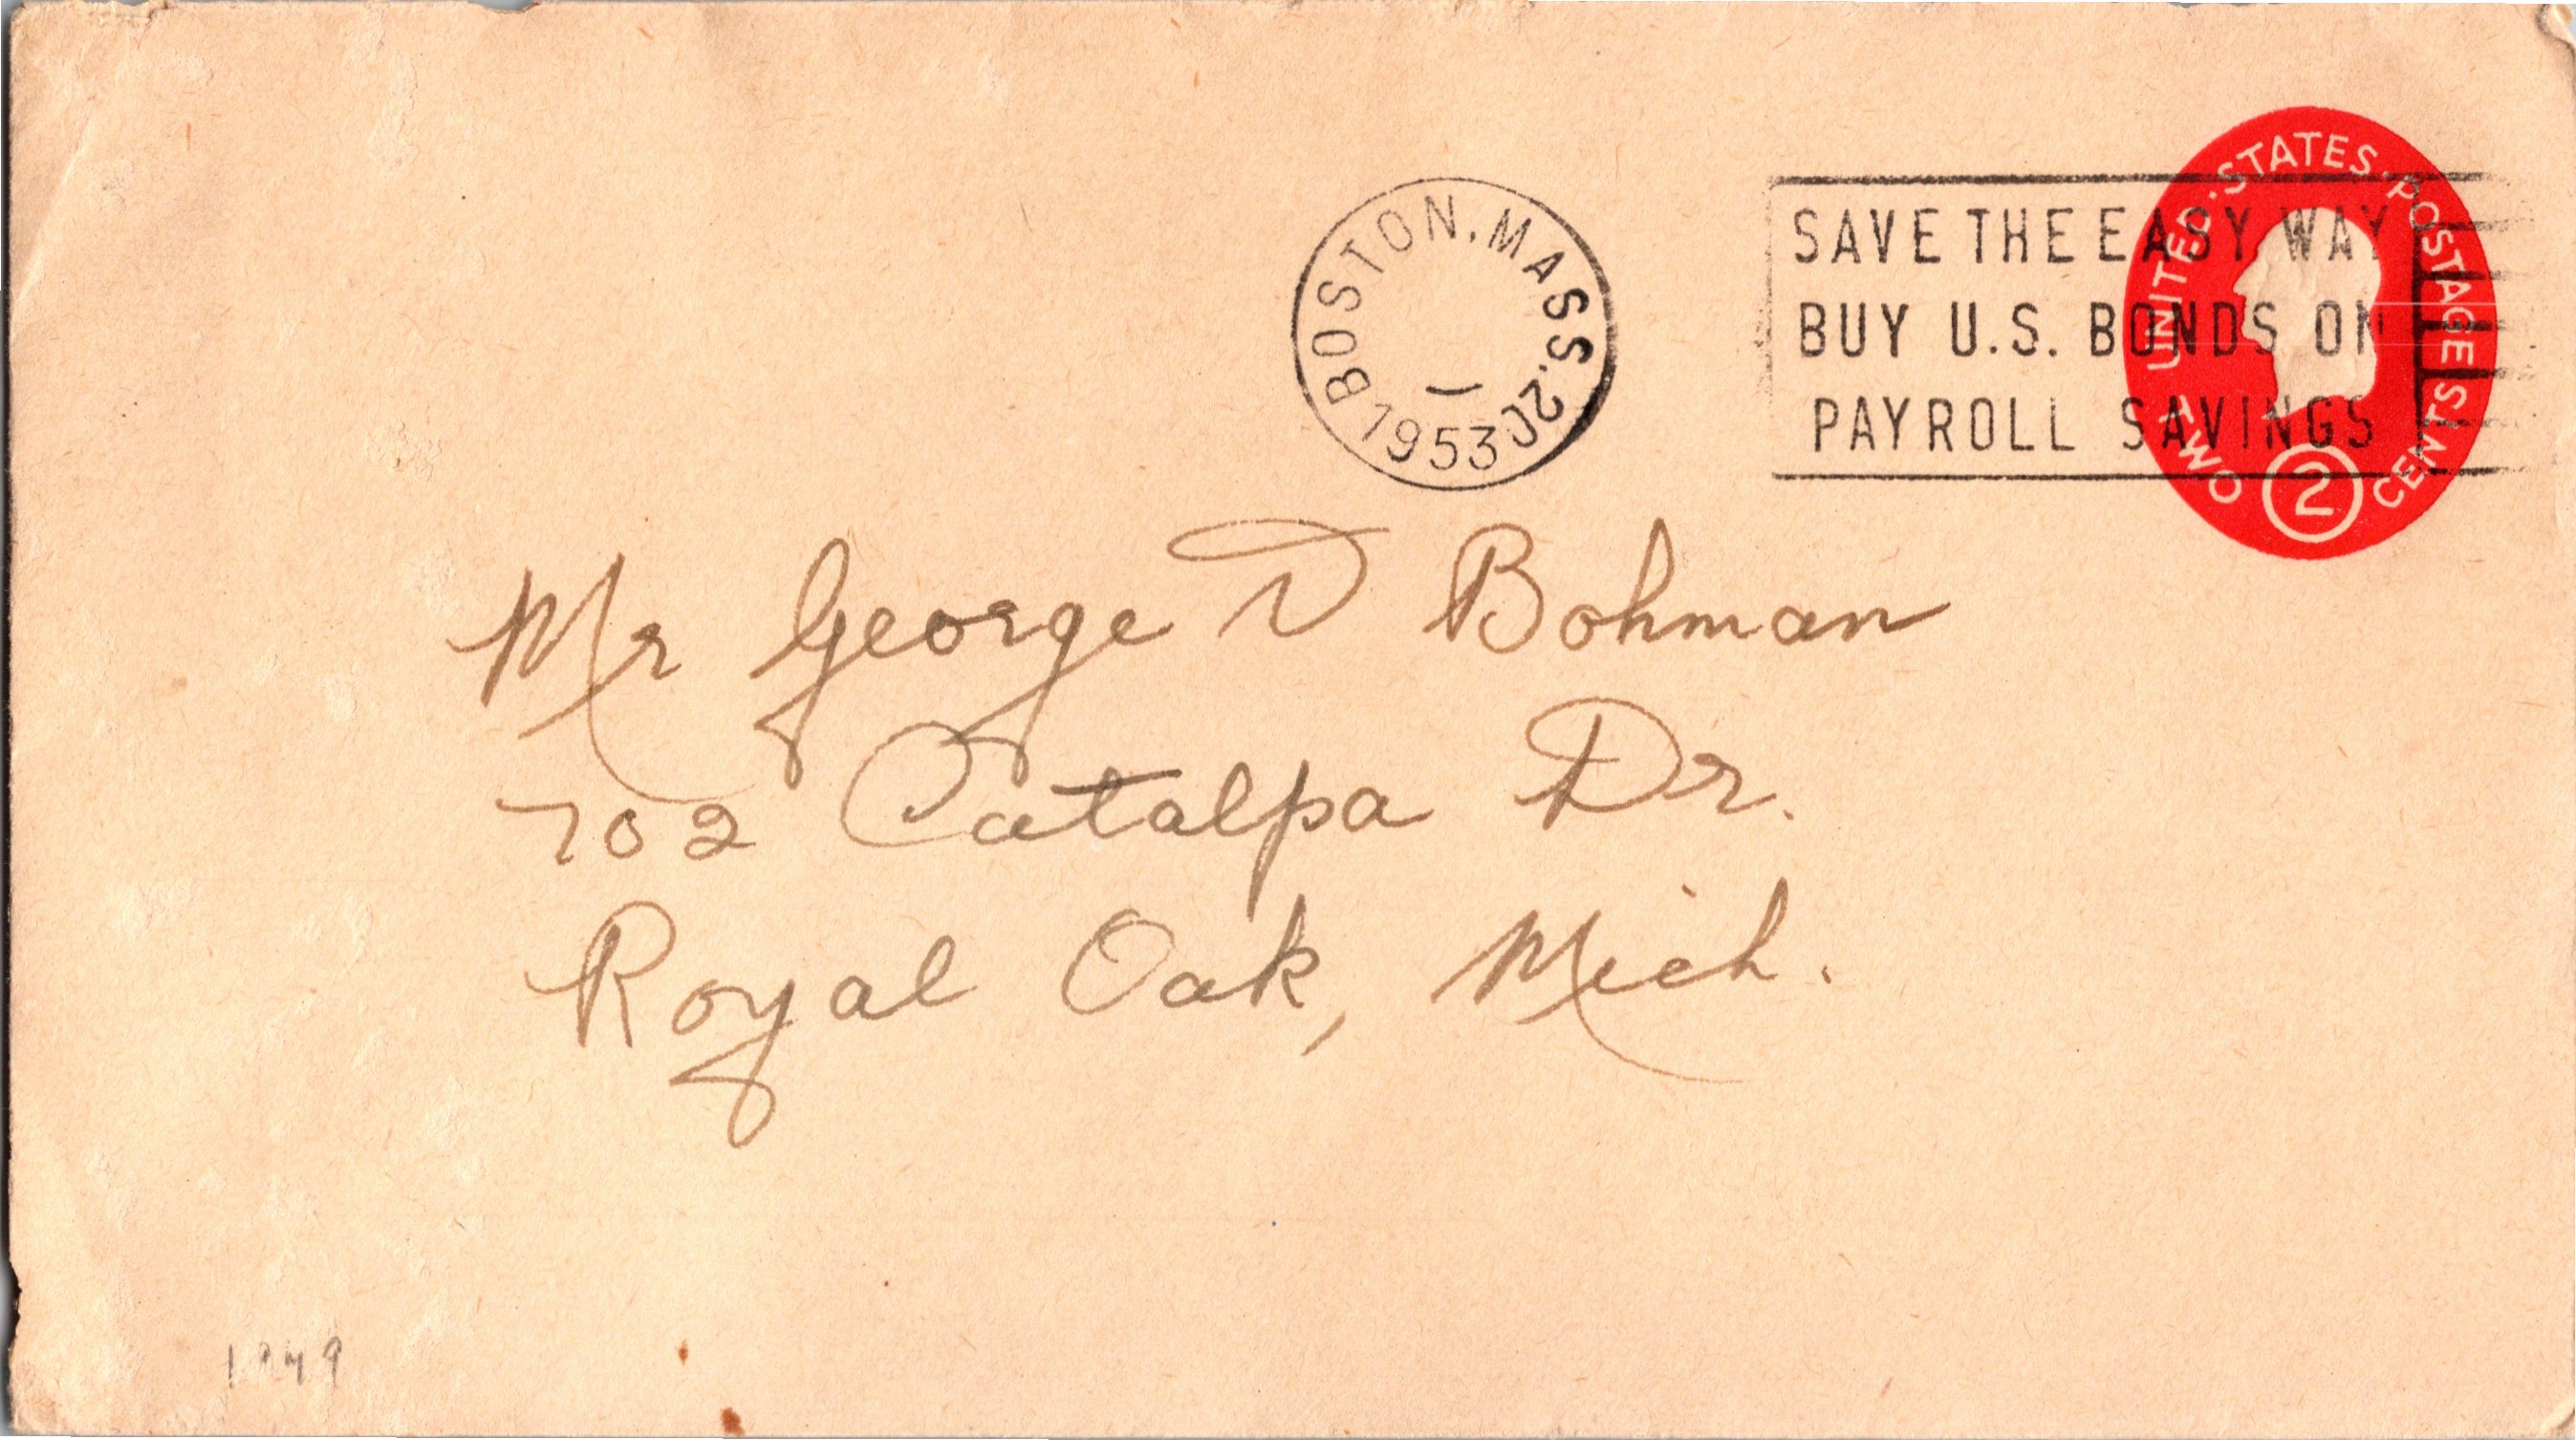 BOSTON, MASS. 20
1953
SAVE THE EASY WAY
BUY U.S. BONDS ON
PAYROLL SAVINGS
UNITED · STATES · POSTAGE
TWO 2 CENTS
Mr George D Bohman
702 Catalpa Dr.
Royal Oak, Mich.